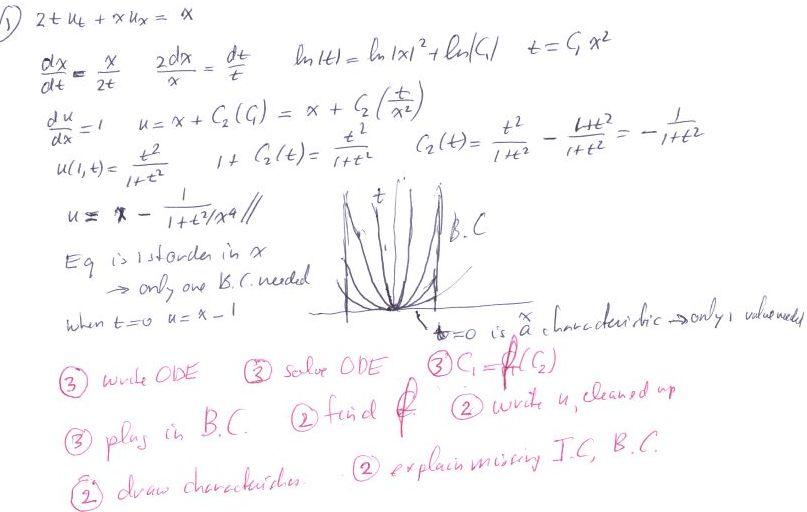 1) 2t u_t + x u_x = x
dx/dt = x/2t   2dx/x = dt/t   ln|t| = ln|x|² + ln|C₁|   t = C₁x²
du/dx = 1   u = x + C₂(C₁) = x + C₂(t/x²)
u(1,t) = t²/1+t²   1 + C₂(t) = t²/1+t²   C₂(t) = t²/1+t² - 1+t²/1+t² = - 1/1+t²
u = x - 1/1+t²/x⁴ //
t
B.C
Eq is 1st order in x
→ only one B.C. needed
when t=0 u = x - 1
x
t=0 is a characteristic → only 1 value needed
③ write ODE   ③ solve ODE   ③ C₁ = f(C₂)
③ plug in B.C.   ② find f   ② write u, cleaned up
② draw characteristics.   ② explain missing I.C, B.C.